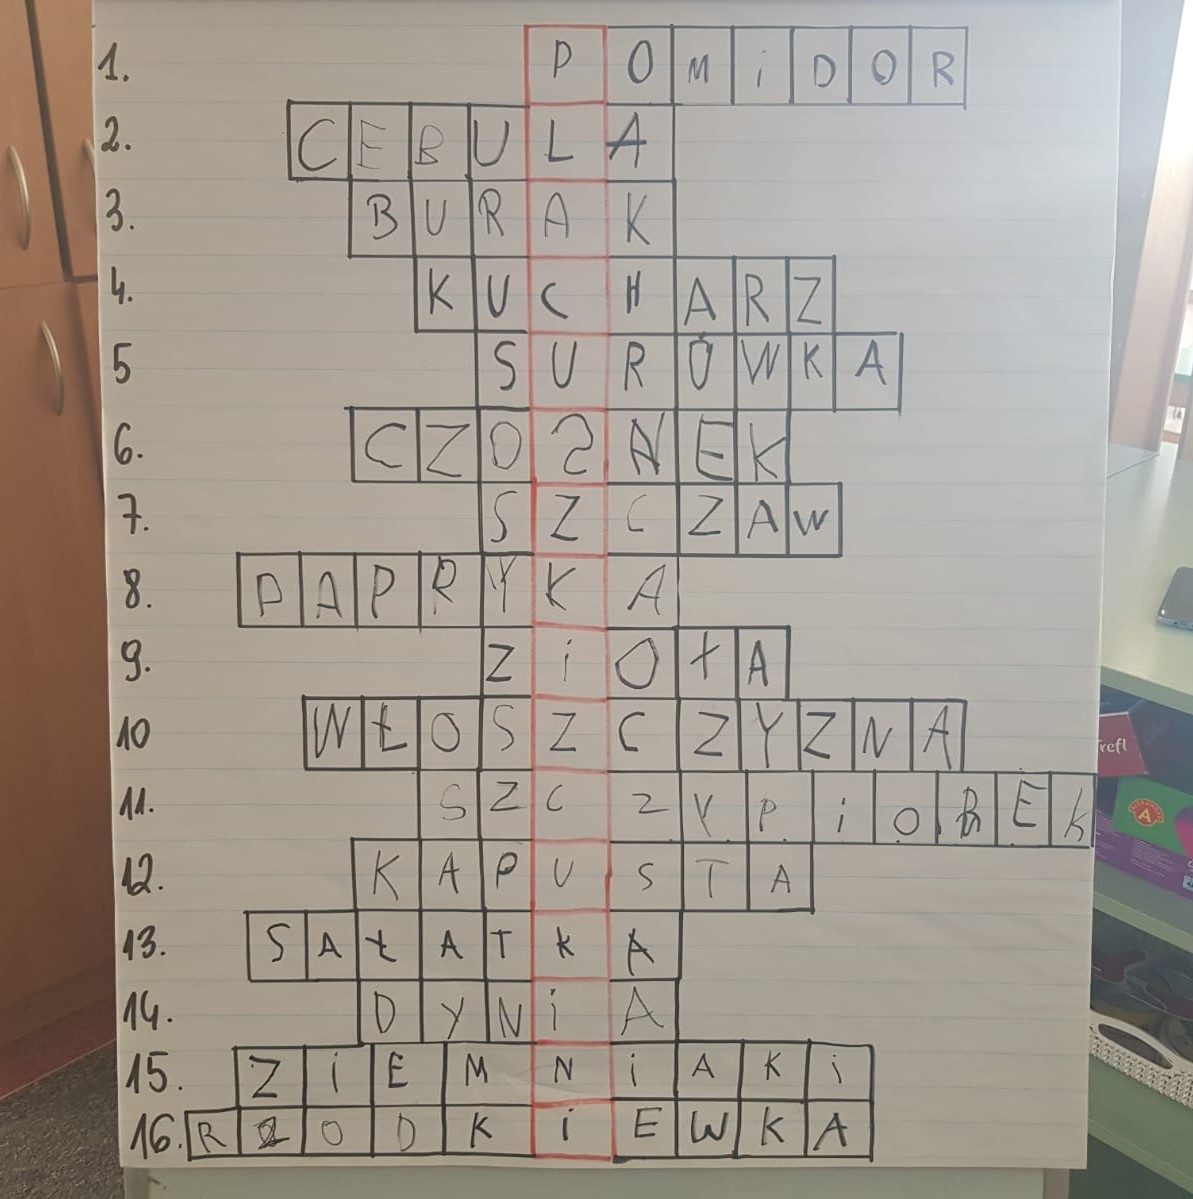 1. POMiDOR
2. CEBULA
3. BURAK
4. KUCHARZ
5 SURÓWKA
6. CZOSNEK
7. SZCZAW
8. PAPRYKA
9. ZiOłA
10 WŁOSZCZYZNA
11. SZCZYPiOREK
12. KAPUSTA
13. SAŁATKA
14. DYNiA
15. ZiEMNiAKi
16. RZODKiEWKA
Trefl
A